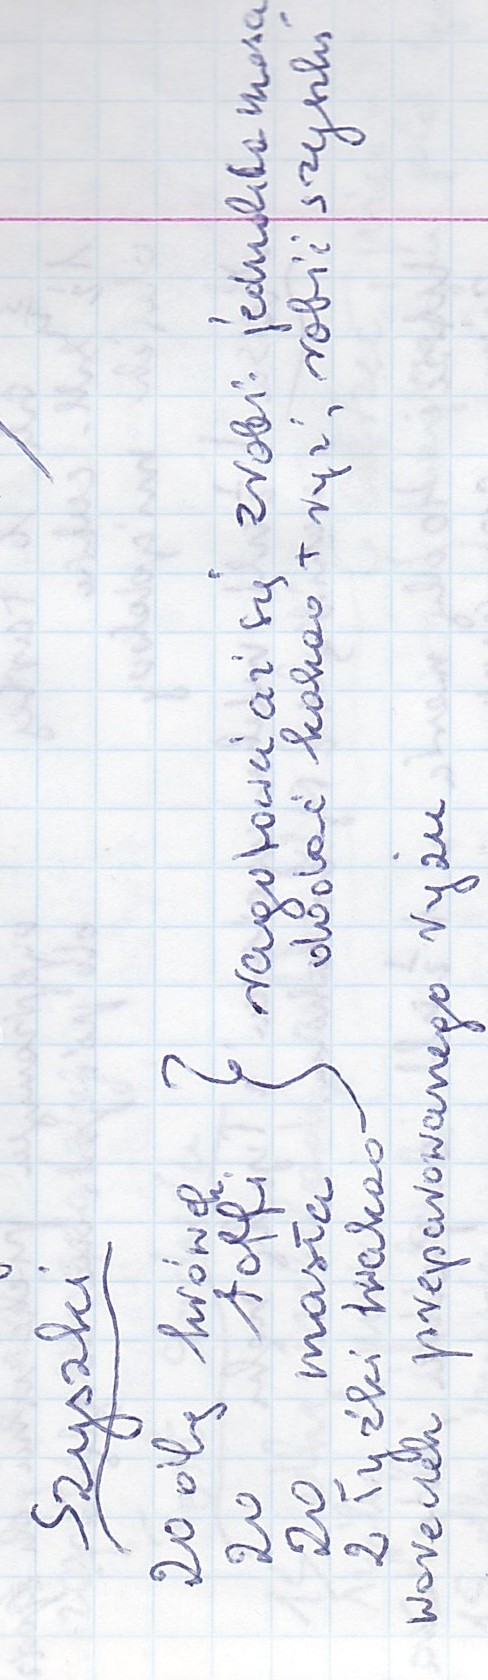 Szyszki
20 dkg krówek
20 toffi
20 masła
2 łyżki kakao
woreczek preparowanego ryżu
zagotować aż się zrobi jednolita masa
dodać kakao + ryż, robić szyszki